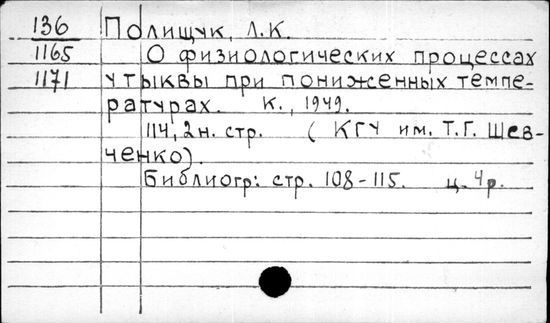 136 Полищук, Л.К.
1165 О физиологических процессах
1171 у тыквы при пониженных темпе-
ратурах. К., 1949.
114, 2н. стр. (КГУ им. Т.Г. Шев-
ченко).
Библиогр: стр. 108-115. ц. 4р.